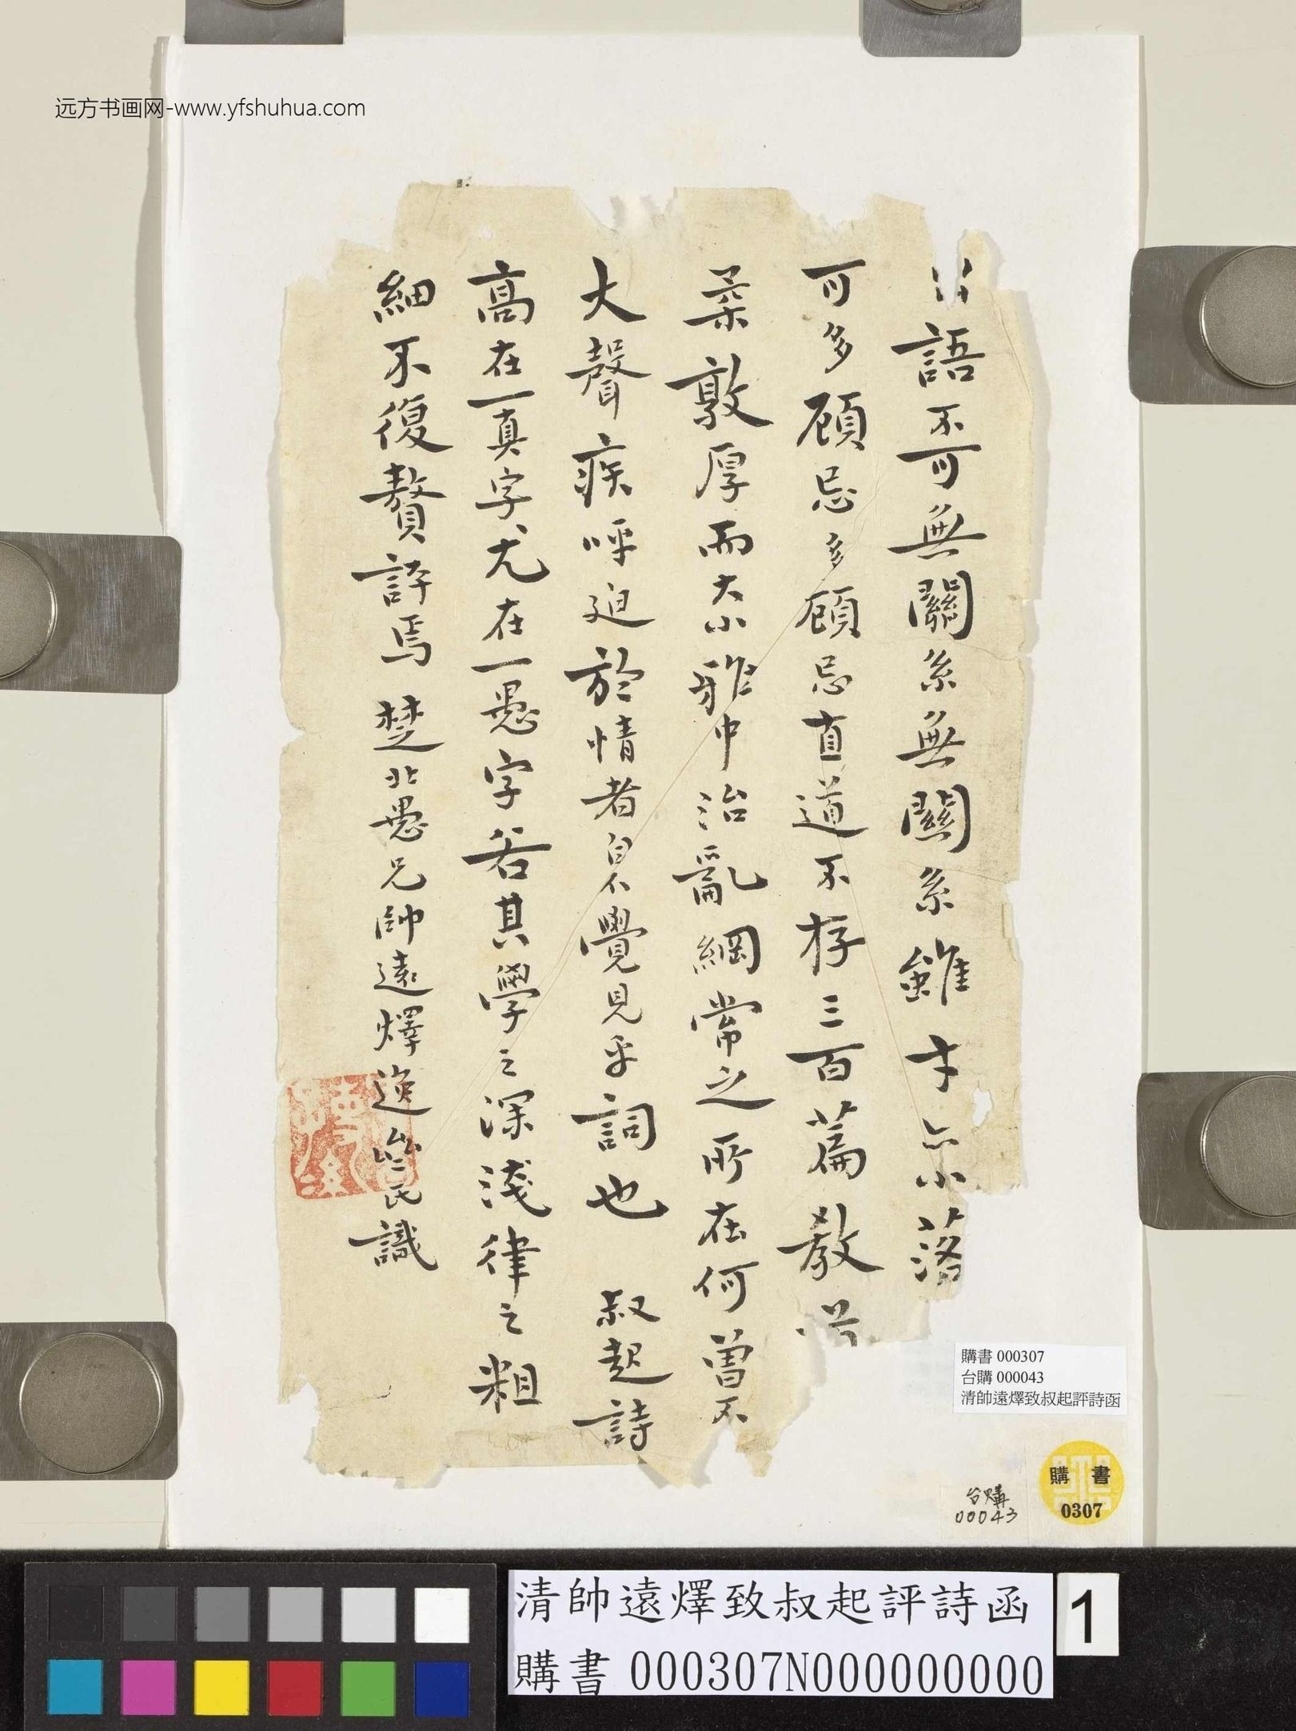 远方书画网-www.yfshuhua.com
語不可無關系無關系雖才亦小落
可多顧忌多顧忌直道不存三百篇教
柔敦厚而大小雅中治亂綱常之所在何曾不
大聲疾呼迫於情者自不覺見乎詞也 叔起詩
高在一真字尤在一愚字若其學之深淺律之粗
細不復贅評焉 楚北愚兄帥遠燡逸巒氏識
購書 000307
台購 000043
清帥遠燡致叔起評詩函
台購
00043
購書
0307
清帥遠燡致叔起評詩函
購書 000307N000000000
1